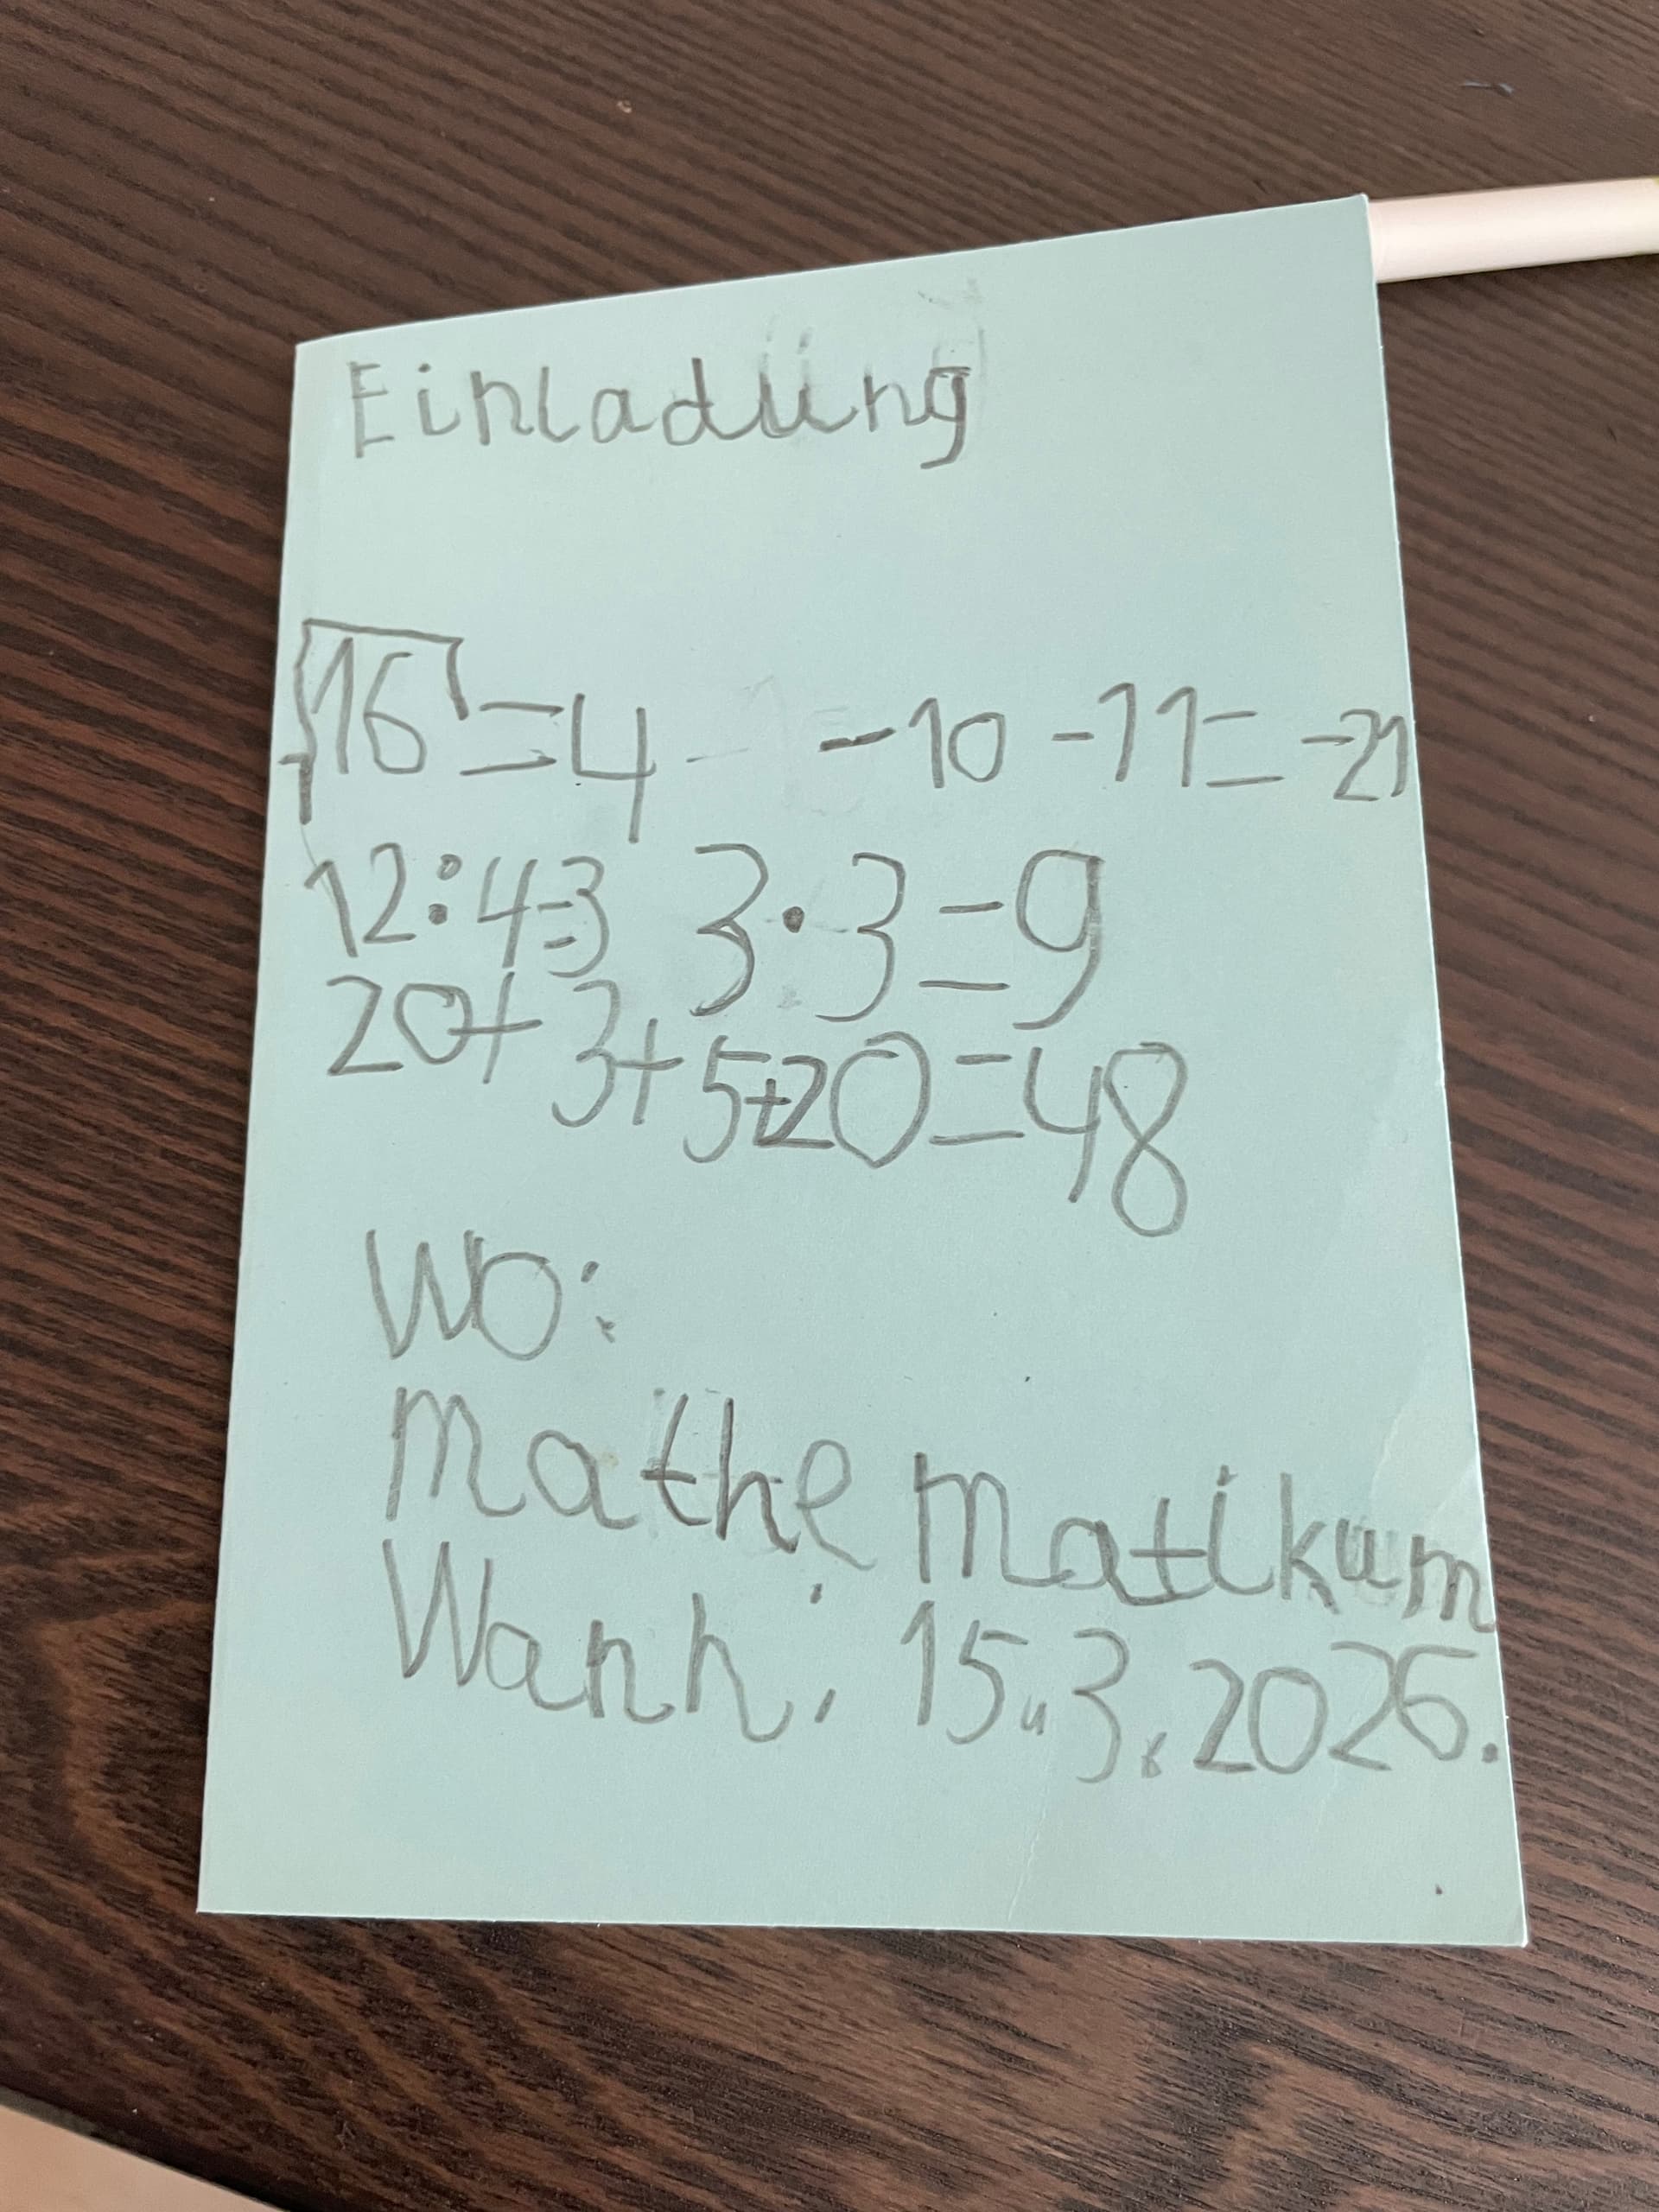 Einladung
√16 = 4 -10 -11 = -21
12:4=3 3·3=9
20+3+5+20=48
Wo:
Mathematikum
Wann: 15.3.2026.